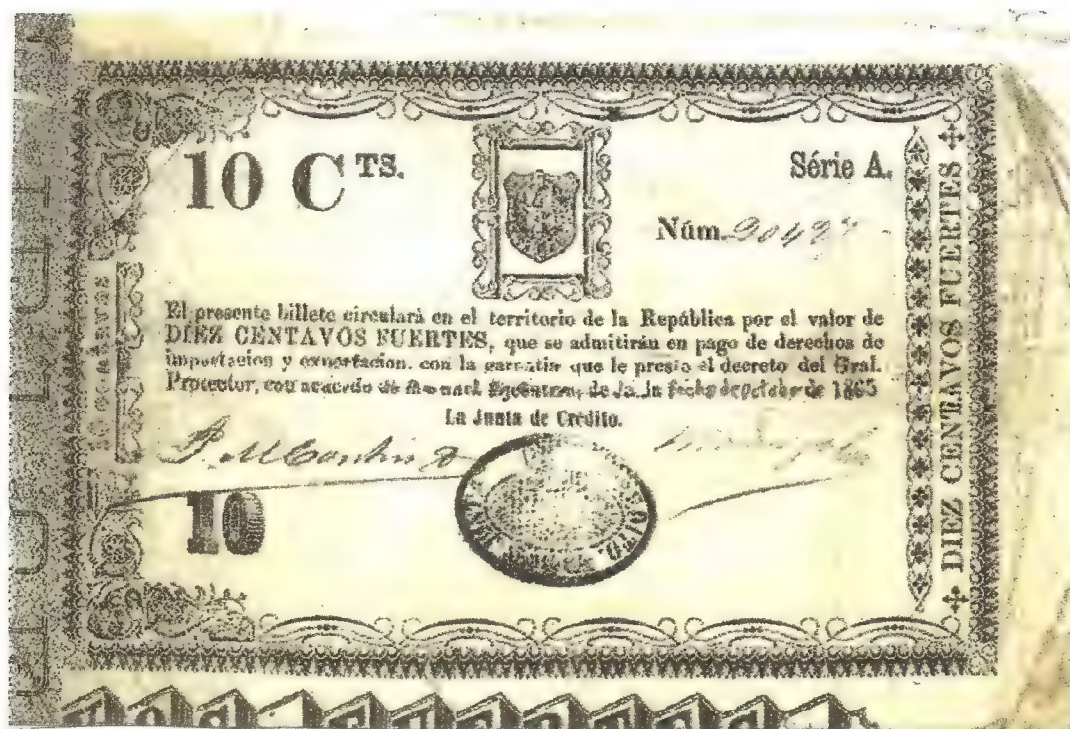 10 CTS.
Série A.
Núm. 2049
El presente billete circulará en el territorio de la República por el valor de
DIEZ CENTAVOS FUERTES, que se admitirán en pago de derechos de
importacion y exportacion, con la garantía que le presta el decreto del Gral.
Protector, con acuerdo de de la fecha de 1865
La Junta de Crédito.
10
DIEZ CENTAVOS FUERTES